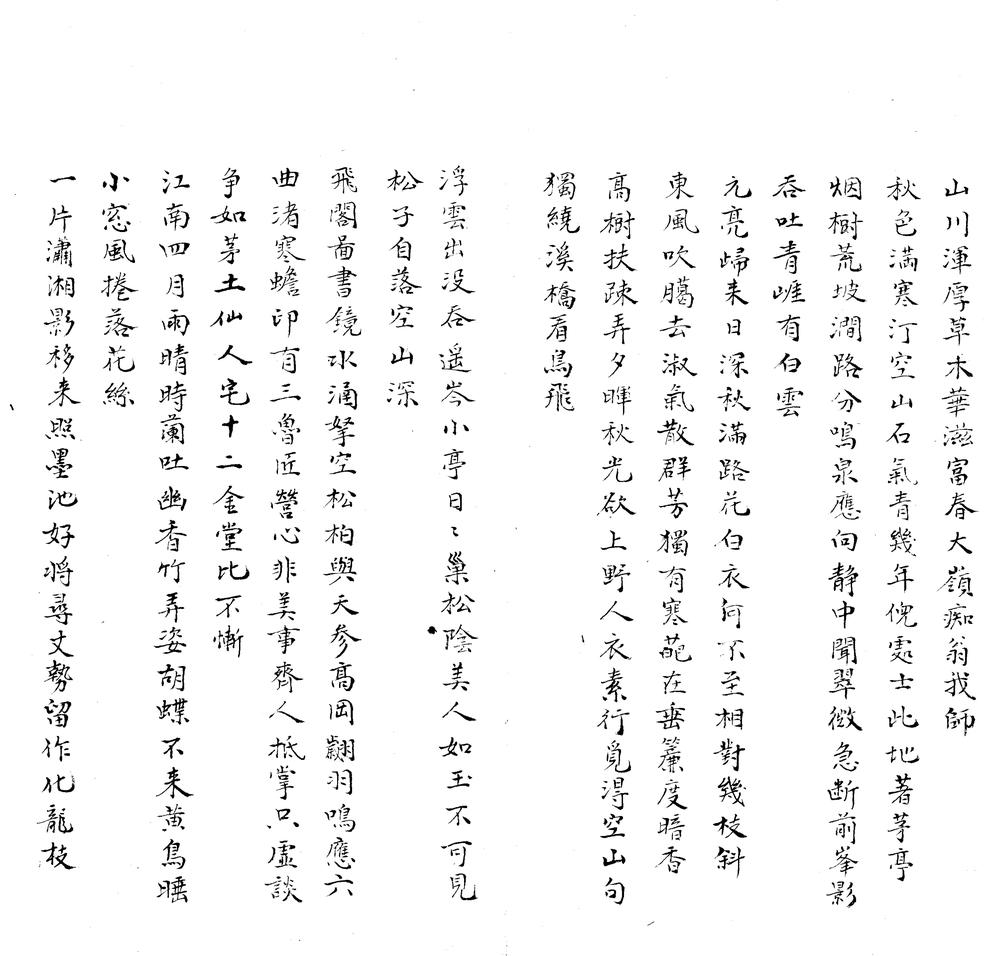 山川渾厚草木華滋富春大嶺痴翁我師
秋色滿寒汀空山石氣青幾年倪處士此地著茅亭
烟樹荒坡澗路分鳴泉應向静中聞翠微急断前峯影
吞吐青崕有白雲
元亮歸来日深秋滿路花白衣何不至相對幾枝斜
東風吹臈去淑氣散群芳獨有寒葩在垂簾度暗香
高樹扶疎弄夕暉秋光欲上野人衣素行覓得空山句
獨繞溪橋看鳥飛
浮雲出没吞遥岑小亭日〻巢松陰美人如玉不可見
松子自落空山深
飛閣啚書鏡水涵拏空松柏與天参高岡翽羽鳴應六
曲渚寒蟾印有三魯匠營心非美事齊人抵掌只虚談
争如茅土仙人宅十二金堂比不慚
江南四月雨晴時蘭吐幽香竹弄姿胡蝶不来黄鳥睡
小窓風捲落花絲
一片瀟湘影移来照墨池好将尋丈勢留作化龍枝